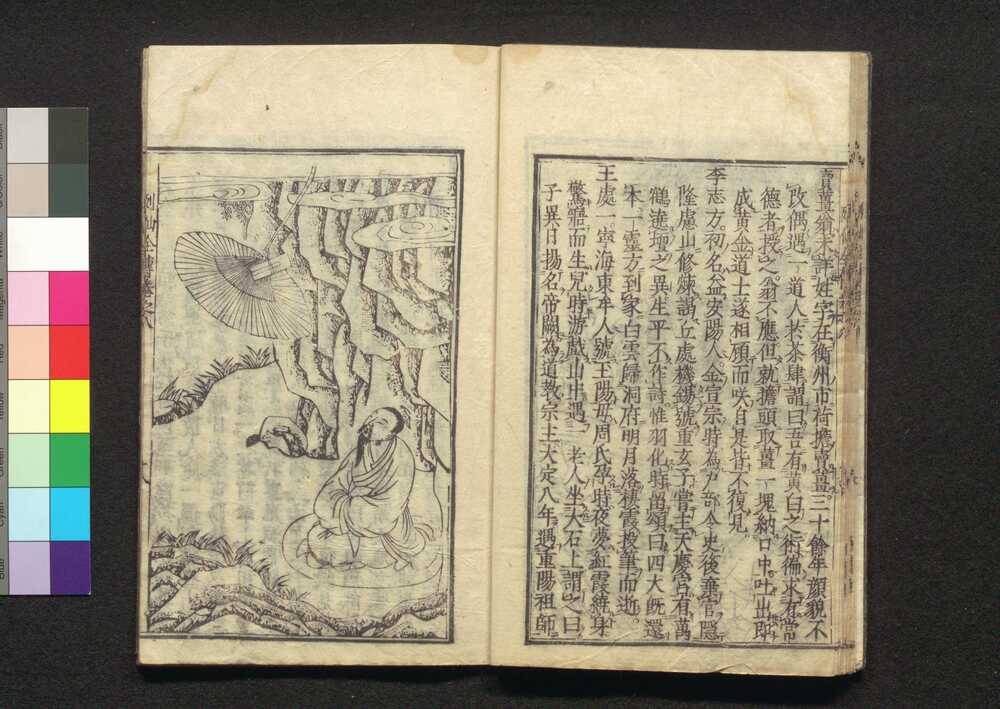 賣薑翁未詳姓字在衡州市荷擔賣薑三十餘年顏貌不
改偶遇一道人於茶肆謂曰吾有黃白之術徧求有常
德者授之翁不應但就擔頭取薑一塊納口中吐出即
成黃金道士遂相顧而咲自是皆不復見
李志方初名益安陽人金宣宗時為戶部令史後棄官隱
隆慮山修煉謁丘處機錫號重玄子嘗主天慶宮有萬
鶴遶壇之異生平不作詩惟羽化時留頌曰四大既還
本一靈方到家白雲歸洞府明月落棲霞投筆而逝
王處一寧海東牟人號王陽母周氏孕時夜夢紅霞繞身
驚寤而生兒時游戲山中遇一老人坐大石上謂之曰
子異日揚名帝闕為道教宗主大定八年遇重陽祖師
列仙全傳卷之八